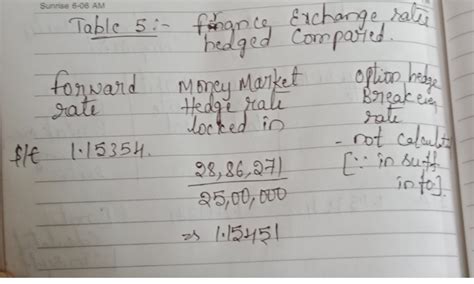 Sunrise 6-06 AM
Table 5:- finance Exchange rate
hedged Compared.
forward Money Market Option hedge
rate Hedge rate Break even
locked in rate
f/€ 1.15354. - not calculat
28,86,271 [∵ in suff
25,00,000 info].
⇒ 1.15451